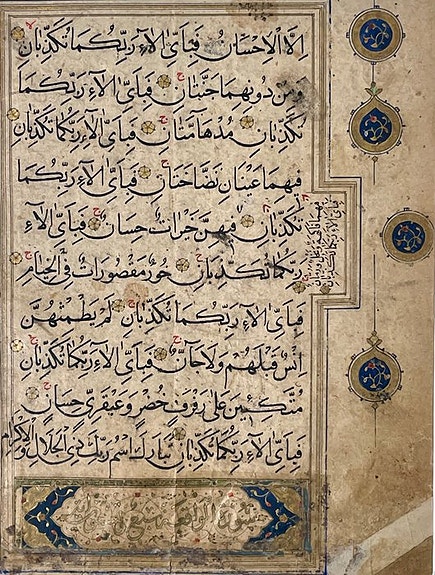 اِلَّا الْاِحْسَانُ فَبِاَىِّ اٰلَآءِ رَبِّكُمَا تُكَذِّبَانِ
وَمِنْ دُونِهِمَا جَنَّتَانِ فَبِاَىِّ اٰلَآءِ رَبِّكُمَا
تُكَذِّبَانِ مُدْهَامَّتَانِ فَبِاَىِّ اٰلَآءِ رَبِّكُمَا تُكَذِّبَانِ
فِيهِمَا عَيْنَانِ نَضَّاخَتَانِ فَبِاَىِّ اٰلَآءِ رَبِّكُمَا
تُكَذِّبَانِ فِيهِنَّ خَيْرَاتٌ حِسَانٌ فَبِاَىِّ اٰلَآءِ
رَبِّكُمَا تُكَذِّبَانِ حُورٌ مَقْصُورَاتٌ فِى الْخِيَامِ
فَبِاَىِّ اٰلَآءِ رَبِّكُمَا تُكَذِّبَانِ لَمْ يَطْمِثْهُنَّ
اِنْسٌ قَبْلَهُمْ وَلَا جَآنٌّ فَبِاَىِّ اٰلَآءِ رَبِّكُمَا تُكَذِّبَانِ
مُتَّكِئِينَ عَلٰى رَفْرَفٍ خُضْرٍ وَعَبْقَرِىٍّ حِسَانٍ
فَبِاَىِّ اٰلَآءِ رَبِّكُمَا تُكَذِّبَانِ تَبَارَكَ اسْمُ رَبِّكَ ذِى الْجَلَالِ وَالْاِكْرَامِ
فيهما فاكهة ونخل ورمان
فبأى آلاء ربكما تكذبان
سورة الواقعة